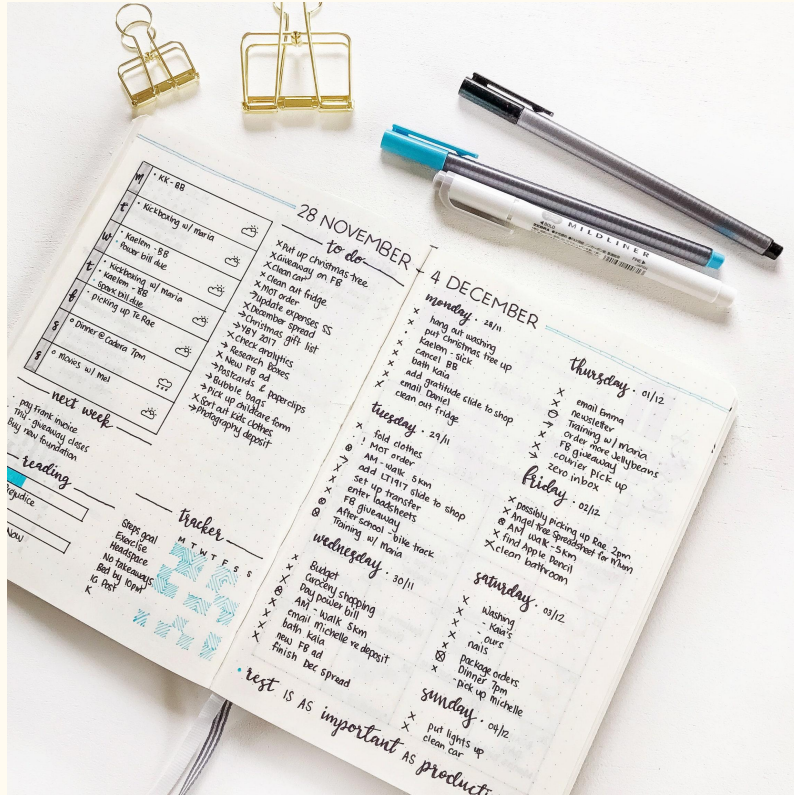 28 NOVEMBER - 4 DECEMBER
M
• KK - BB
t
• Kickboxing w/ maria
w
• Kaelem - BB
Power bill due
t
• Kickboxing w/ Maria
• Kaelem - BB
• Spark bill due
f
• picking up Te Rae
s
○ Dinner @ Cadera 7pm
s
○ Movies w/ Mel
next week
• pay Frank invoice
giveaway closes
Buy new foundation
reading
Prejudice
Now
to do
x Put up christmas tree
x Giveaway on FB
x Clean car
x Clean out fridge
x MOT order
→ Update expenses SS
x December spread
→ Christmas gift list
→ YBY 2017
x Check analytics
x Research Boxes
x New FB ad
→ Postcards & paperclips
→ Bubble bags
→ Pick up childcare form
x Sort out kids clothes
→ Photography deposit
tracker
M T W T F S S
Steps goal
Exercise
Headspace
No takeaways
Bed by 10pm
IG Post
K
monday • 28/11
x hang out washing
x put christmas tree up
x Kaelem - sick
x cancel BB
x bath Kaia
x add gratitude slide to shop
x email Daniel
x clean out fridge
tuesday • 29/11
x fold clothes
! MOT order
AM - walk 5km
add LT1917 slide to shop
set up transfer
enter loadsheets
FB giveaway
After school - bike track
Training w/ Maria
wednesday • 30/11
x Budget
x Grocery shopping
x Day power bill
AM - walk 5km
x email Michelle re deposit
x bath Kaia
x new FB ad
x finish Dec spread
thursday • 01/12
x email Emma
x newsletter
Training w/ Maria
→ order more Jellybeans
x FB giveaway
x courier pick up
→ zero inbox
friday • 02/12
x possibly picking up Rae 2pm
x Angel tree Spreadsheet for mum
AM walk - 5km
x find Apple Pencil
x clean bathroom
saturday • 03/12
x washing
x - Kaia's
x - ours
x nails
package orders
x Dinner 7pm
- pick up michelle
sunday • 04/12
x put lights up
x clean car
• rest IS AS important AS producti
MILDLINER